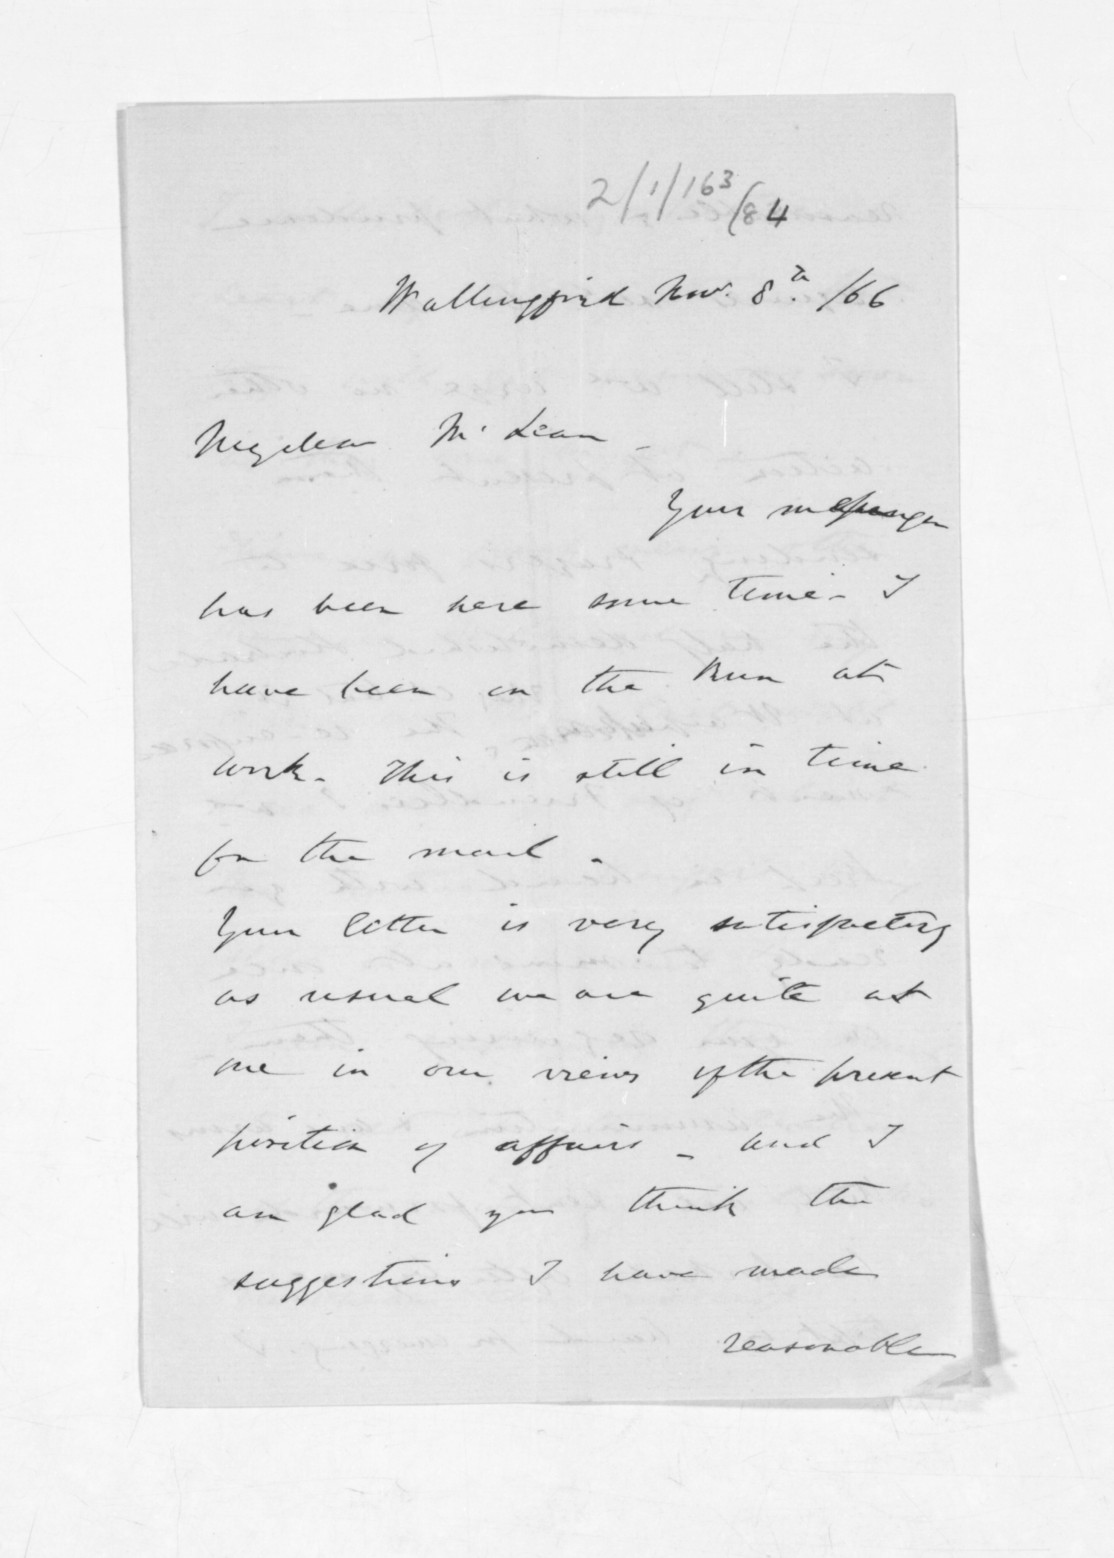 2/1/163
/84
Wallingford Nov. 8th. /66
My dear McLean _
Your messenger
has been here some time - I
have been on the Run at
work. This is still in time
for the mail.
Your letter is very satisfactory
as usual we are quite at
one in our views of the present
position of affairs - and I
am glad you think the
suggestions I have made
reasonable